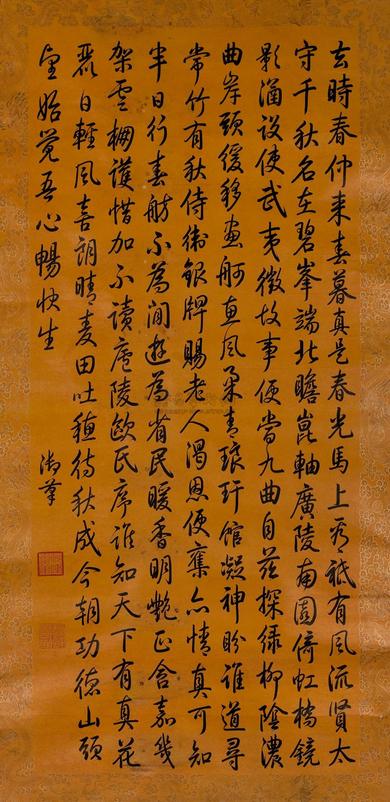 去時春仲來春暮真是春光馬上看祗有風流賢太
守千秋名在碧峯端北瞻崑軸廣陵南園倚虹橋鏡
影涵設使武夷徵故事便當九曲自茲探綠柳陰濃
曲岸頭緩移畫舸惠風柔青琅玕館凝神盼誰道尋
常竹有秋侍衛銀牌賜老人渴恩便奮亦情真可知
半日行春舫不為閒遊為省民暖香明艷正含嘉幾
架雲棚護惜加不讀廬陵歐氏序誰知天下有真花
麗日輕風喜朗晴麦田吐穗待秋成今朝功德山頭
望始覺吾心暢快生
御筆